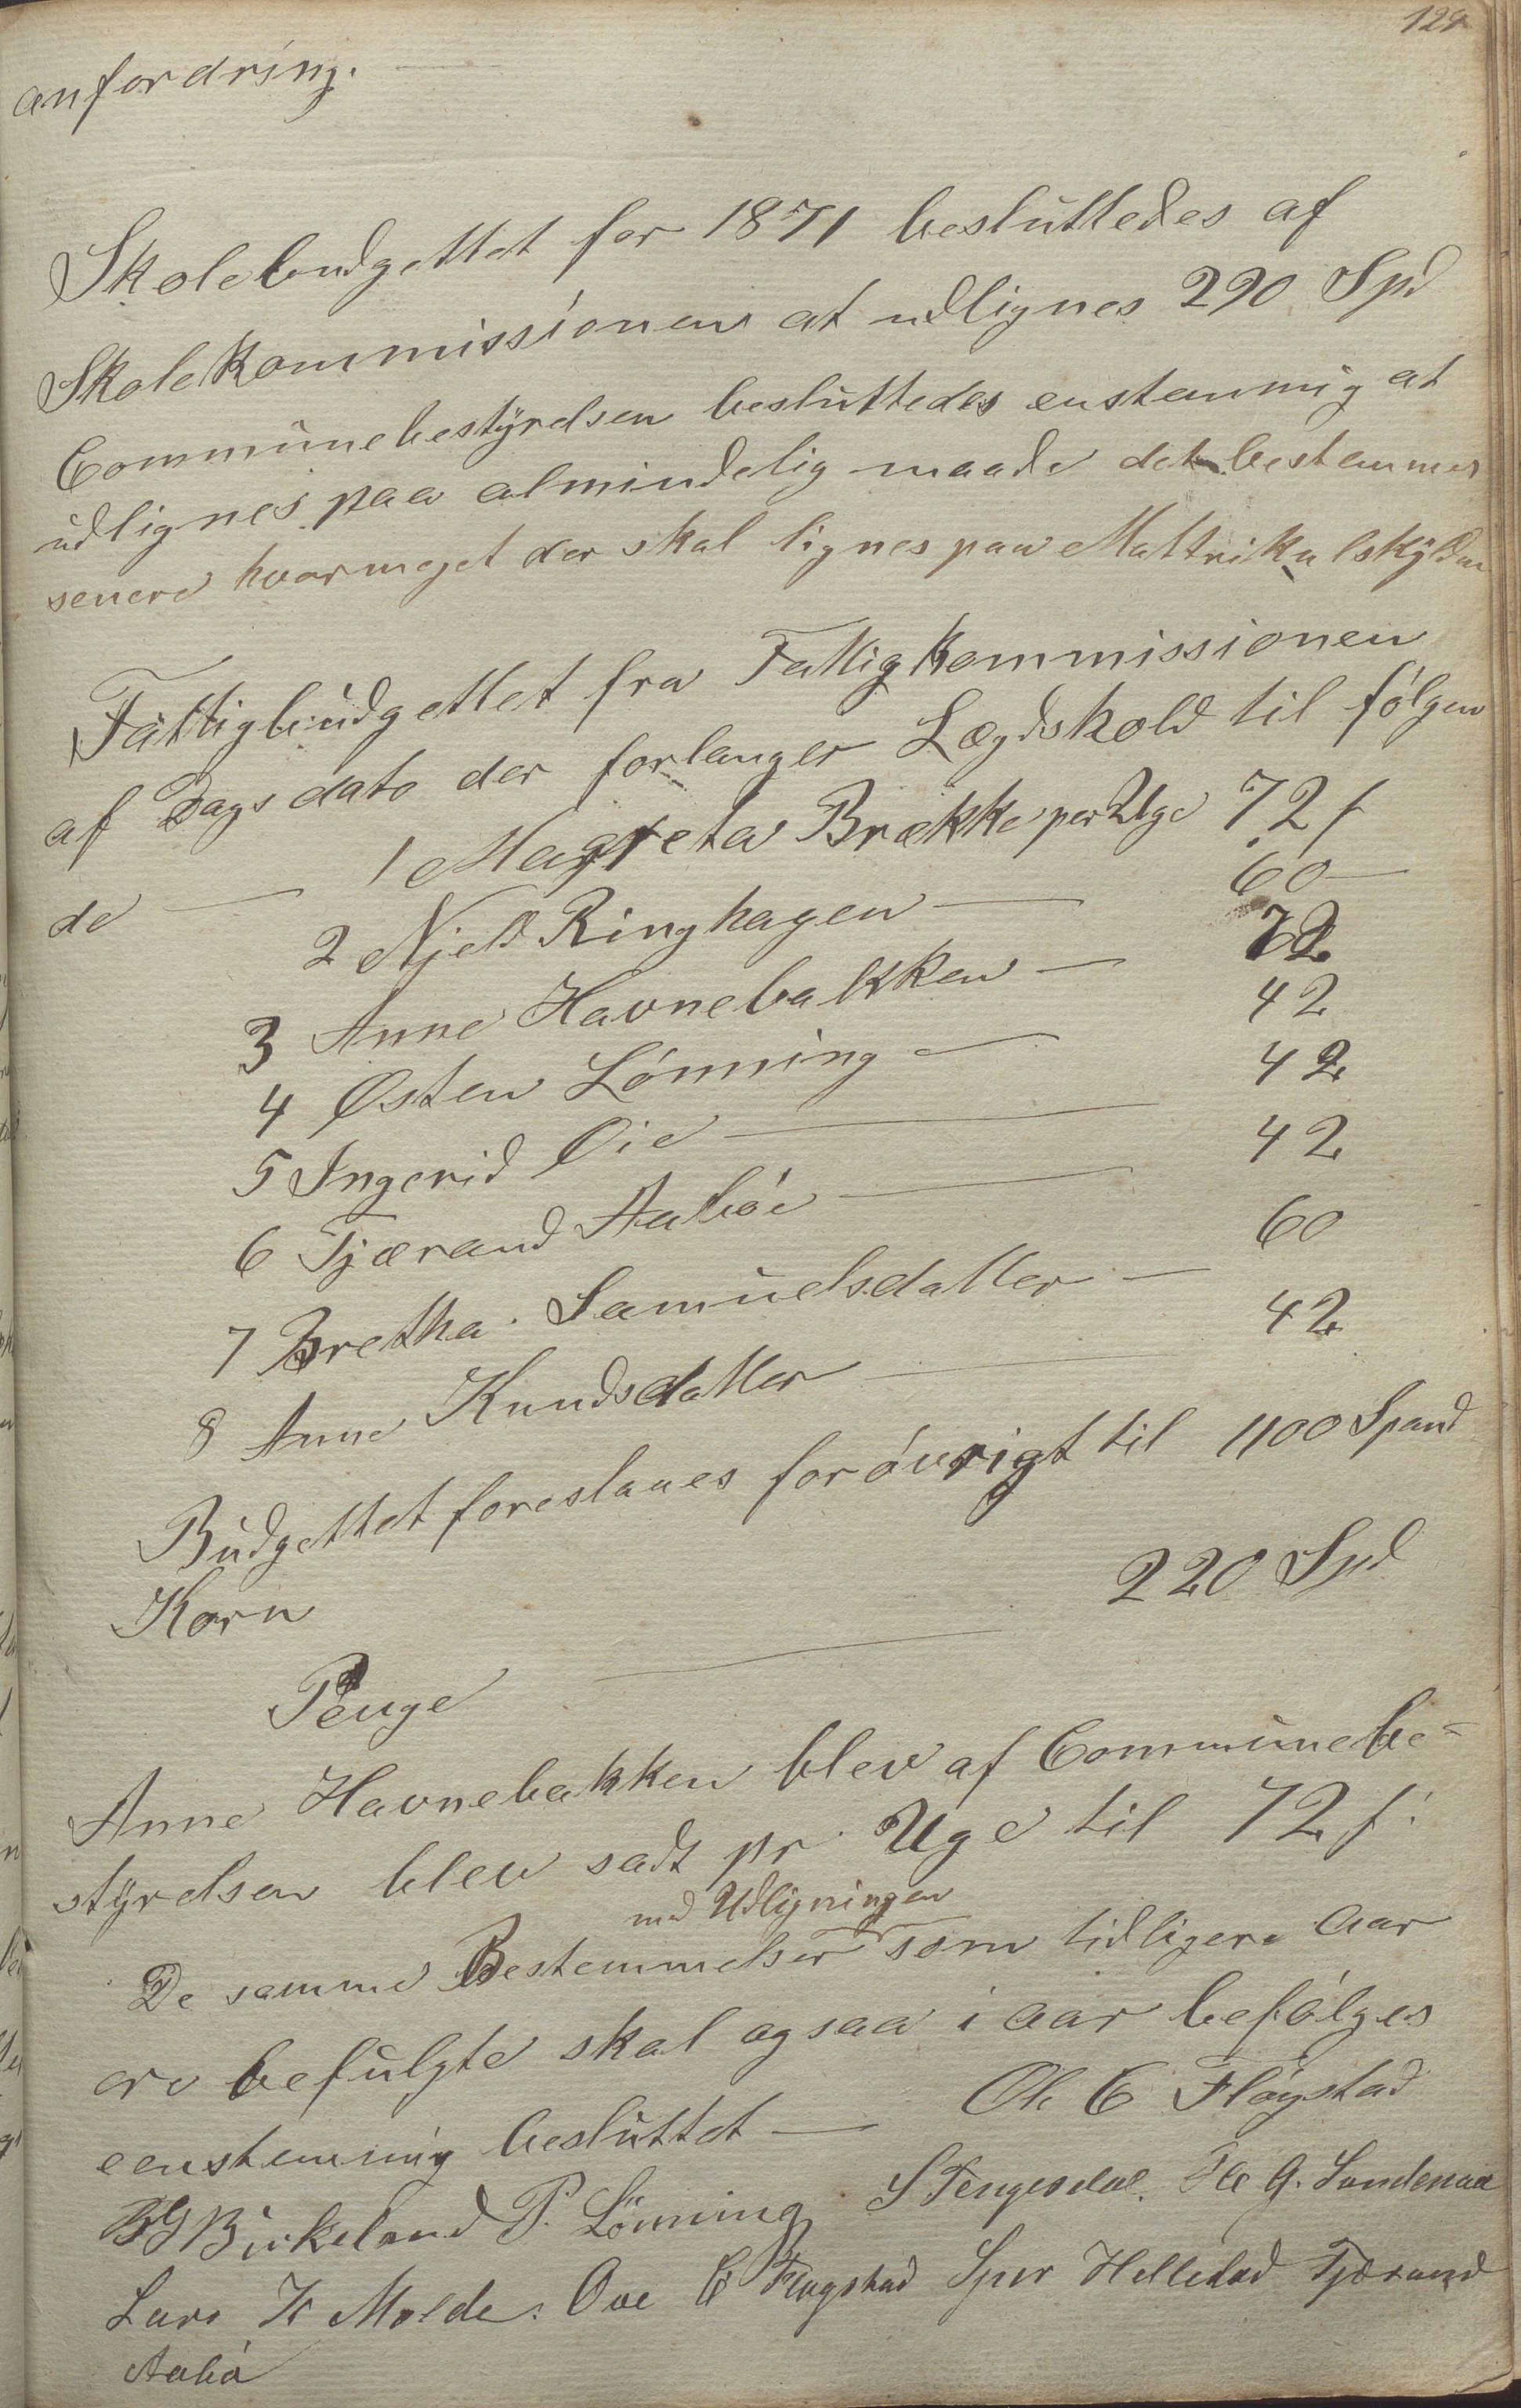 129
anfordring.
Skolebudgettet for 1871 besluttedes af
Skolekommissionen at udlignes 290 Spd
Communebestyrelsen besluttedes enstemmig at
udlignes paa almindelig maade det bestemmes
senere hvormeget der skal lignes paa Mattrikulskylden
Fattigbudgettet fra Fattigkommissionen
af Dags dato der forlanger Lægdskold til følgen
de — 1 Magreta Brække per Uge 72 f
2 Njeld Ringhagen — 60 —
3 Anne Havnebakken — 72
4 Østen Lönning — 42
5 Ingerid Øie — 42
6 Tjærand Aabøe — 42
7 Bretha Samuelsdatter — 60
8 Anne Knudsdatter — 42
Budgettet foreslaaes forøvrigt til 1100 Spand
Korn
Penge — 220 Spd
Anne Havnebakken blev af Communebe-
styrelsen blev sadt pr Uge til 72 f:
med Udligningen
De samme Bestemmelser som tidligere Aar
ere befulgte skal ogsaa i aar befølges
eenstemmig besluttet — Ole C Fløgstad
Birkeland P. Lönning S Tengesdal. G. Sandenaa
Lars Molde. Ove C Fløgstad Hellelad Tjærand
Aabø